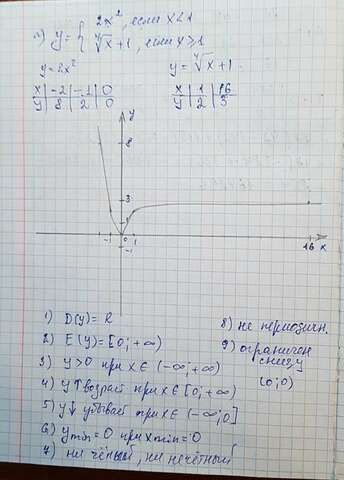 y = { 2x², если x < 1
∜x + 1, если x ≥ 1
y = 2x²
y = ∜x + 1
x | -2 | -1 | 0
y | 8 | 2 | 0
x | 1 | 16
y | 2 | 3
y
8
3
1
-1 0 1
16 x
-1
1) D(y) = R
2) E(y) = [0; +∞)
3) y > 0 при x ∈ (-∞; +∞)
4) y↑ возраст при x ∈ [0; +∞)
5) y↓ убывает при x ∈ (-∞; 0]
6) y min = 0 при x min = 0
7) ни чётный, ни нечётный
8) не периодичн.
9) ограничен
снизу
(0; 0)